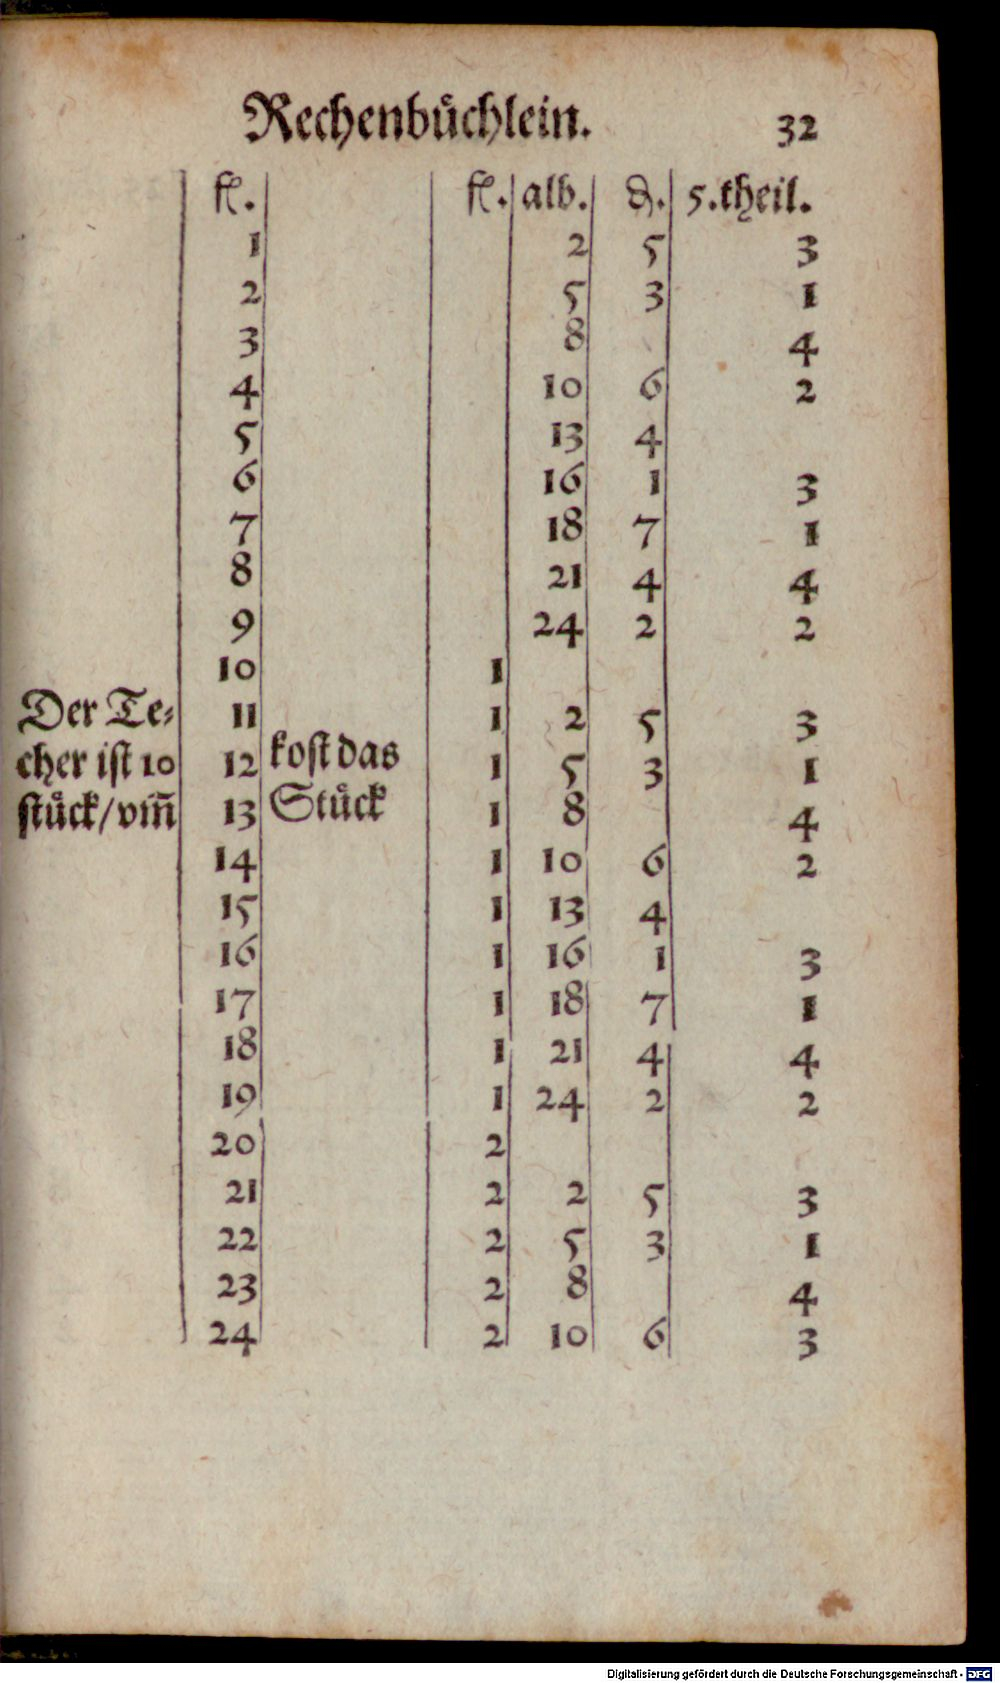 Rechenbůchlein. 32
fl. fl. alb. ₰. 5.theil.
1 2 5 3
2 5 3 1
3 8 4
4 10 6 2
5 13 4
6 16 1 3
7 18 7 1
8 21 4 4
9 24 2 2
10 1
Der Te⸗ 11 1 2 5 3
cher ist 10 12 kost das 1 5 3 1
stůck/vm̃ 13 Stůck 1 8 4
14 1 10 6 2
15 1 13 4
16 1 16 1 3
17 1 18 7 1
18 1 21 4 4
19 1 24 2 2
20 2
21 2 2 5 3
22 2 5 3 1
23 2 8 4
24 2 10 6 3
Digitalisierung gefördert durch die Deutsche Forschungsgemeinschaft - DFG